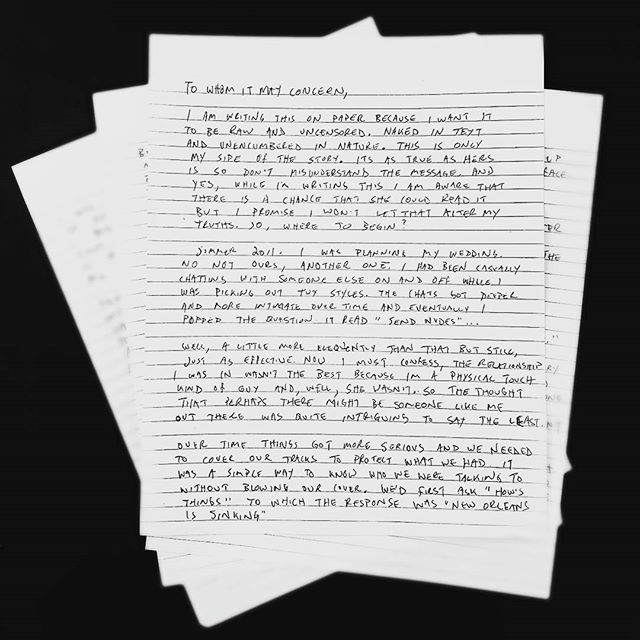 TO WHOM IT MAY CONCERN,
I AM WRITING THIS ON PAPER BECAUSE I WANT IT
TO BE RAW AND UNCENSORED. NAKED IN TEXT
AND UNENCUMBERED IN NATURE. THIS IS ONLY
MY SIDE OF THE STORY. ITS AS TRUE AS HERS
IS SO DON'T MISUNDERSTAND THE MESSAGE. AND
YES, WHILE I'M WRITING THIS I AM AWARE THAT
THERE IS A CHANCE THAT SHE COULD READ IT
BUT I PROMISE I WON'T LET THAT ALTER MY
TRUTHS. SO, WHERE TO BEGIN?
SUMMER 2011. I WAS PLANNING MY WEDDING.
NO NOT OURS, ANOTHER ONE. I HAD BEEN CASUALLY
CHATTING WITH SOMEONE ELSE ON AND OFF WHILE I
WAS PICKING OUT TUX STYLES. THE CHATS GOT DEEPER
AND MORE INTIMATE OVER TIME AND EVENTUALLY I
POPPED THE QUESTION. IT READ "SEND NUDES"...
WELL, A LITTLE MORE ELEQUENTLY THAN THAT BUT STILL,
JUST AS EFFECTIVE. NOW I MUST CONFESS, THE RELATIONSHIP
I WAS IN WASN'T THE BEST BECAUSE I'M A PHYSICAL TOUCH
KIND OF GUY AND, WELL, SHE WASN'T. SO THE THOUGHT
THAT PERHAPS THERE MIGHT BE SOMEONE LIKE ME
OUT THERE WAS QUITE INTRIGUING TO SAY THE LEAST.
OVER TIME THINGS GOT MORE SERIOUS AND WE NEEDED
TO COVER OUR TRACKS TO PROTECT WHAT WE HAD. IT
WAS A SIMPLE WAY TO KNOW WHO WE WERE TALKING TO
WITHOUT BLOWING OUR COVER. WE'D FIRST ASK "HOW'S
THINGS" TO WHICH THE RESPONSE WAS "NEW ORLEANS
IS SINKING"